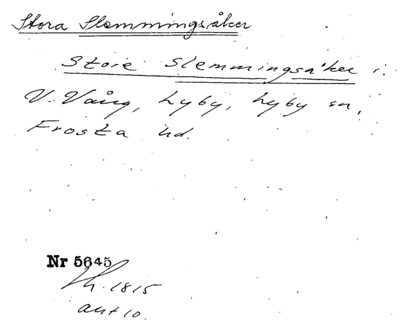 Stora Slemmingsåker
Store Slemmingsåker i
V. Vång, Lyby, Lyby sn,
Frosta hd.
Nr 5645
Lh. 1815
akt 10.